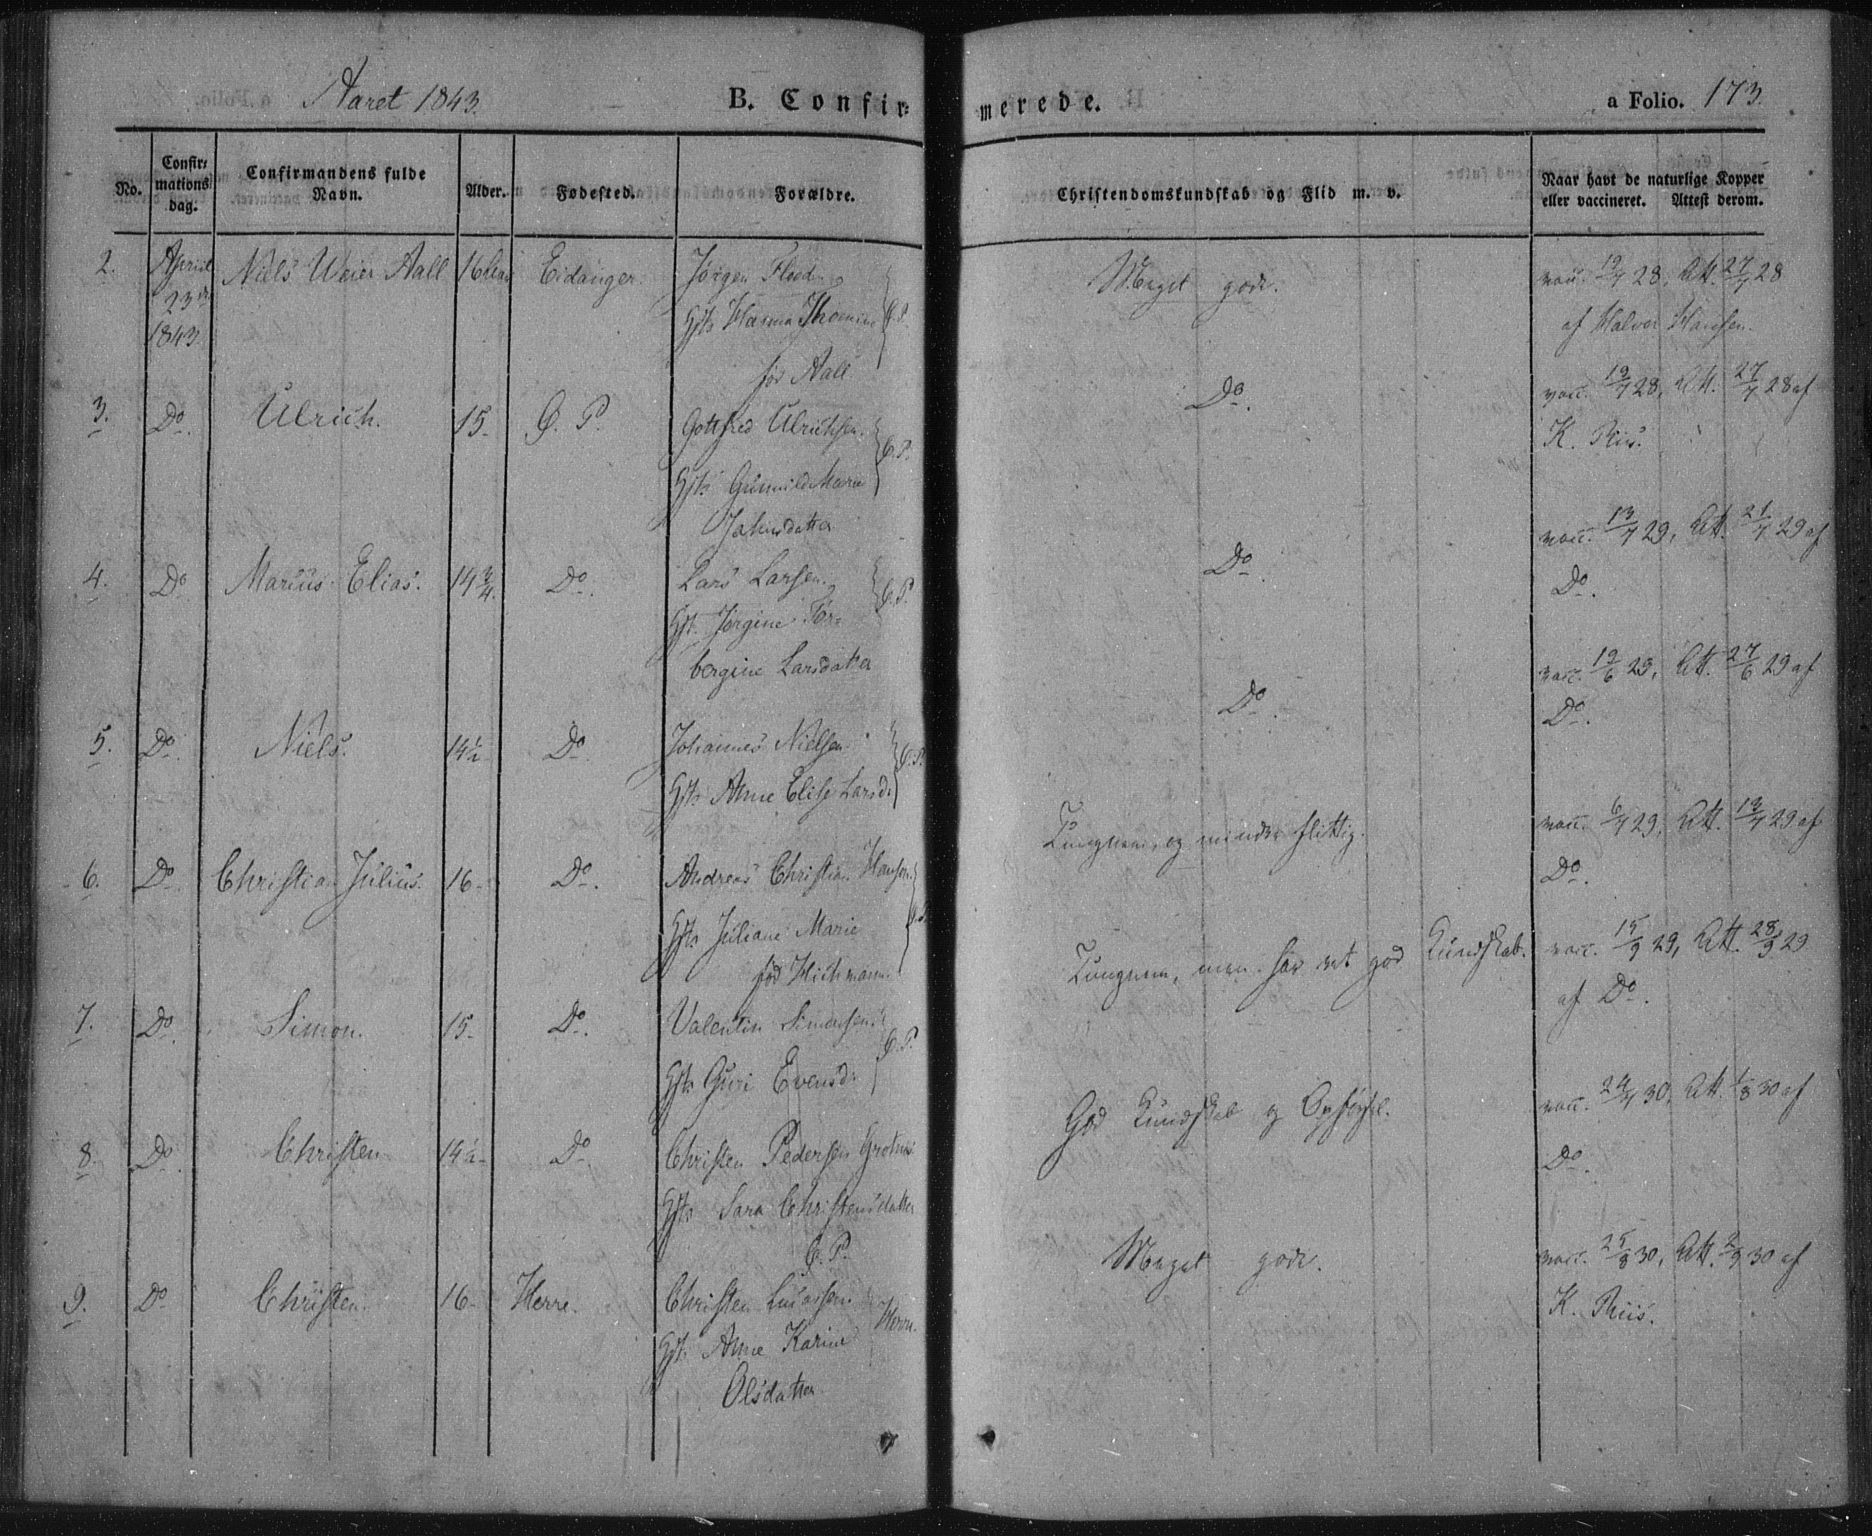 Aaret 1843.
B. Confirmerede.
a Folio. 173.
No.
Confirmations dag.
Confirmandens fulde Navn.
Alder.
Fødested.
Forældre.
Christendomskundskab og Flid m. v.
Naar havt de naturlige Kopper eller vaccineret. Attest derom.
2. April 23de 1843 Niels Weier Aall 16 Eidanger. Jørgen Flood
Hst: Thomine
fød Aall
Meget god.
vacc. 19/7 28, Att. 27/7 28
af Halvor Hansen.
3. Do. Ulrich. 15. G. P. Gottfred Ulrichsen. G.P.
Hst: Gunnild Marie
Jahnsdatter
Do.
vacc. 19/7 28, Att. 27/7 28 af
K. Riis.
4. Do. Marius Elias. 14 3/4. Do. Lars Larsen. G.P.
Hst: Jørgine Tor-
bergine Larsdatter
Do.
vacc. 13/7 29, Att. 21/7 29 af
Do.
5. Do. Niels. 14 1/2 Do. Johannes Nielsen. G.P.
Hst: Anne Elise Larsd:
Do.
vacc. 19/6 29, Att. 27/6 29 af
Do.
6. Do. Christian Julius. 16. Do. Andreas Christian Hansen.
Hst: Juliane Marie
fød
Tungnem, og mindre flittig.
vacc. 6/7 29, Att. 13/7 29 af
Do.
7. Do. Simon. 15. Do. Valentin Simonsen. G.P.
Hst: Guri Evensd:
Tungnem, men har ret god Kundskab.
vacc. 15/9 29, Att. 28/9 29
af Do.
8. Do. Christen 14 1/2 Do. Christen Pedersen
Hst: Sara Christensdatter
G.P.
God Kundskab og Opførsel.
vacc. 24/7 30, Att. 1/8 30 af
Do.
9. Do. Christen. 16. Herre. Christen
Hst: Anne Karine
Olsdatter
Meget god.
vacc. 25/8 30, Att. 2/9 30 af
K. Riis.